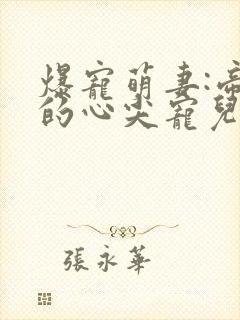 爆寵萌妻:帝
的心尖寵兒
張永華